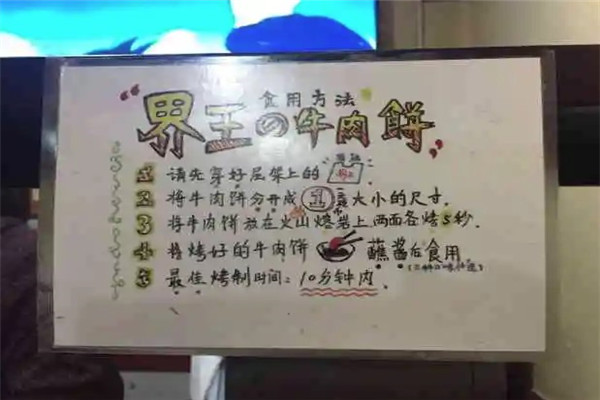 食用方法
“界王の牛肉餅”
1 请先穿好层架上的“围裙”:
2 将牛肉饼分开成①大小的尺寸.
3 将牛肉饼放在火山熔岩上两面各烤5秒.
4 将烤好的牛肉饼 蘸酱后食用
5 最佳烤制时间:10分钟内.